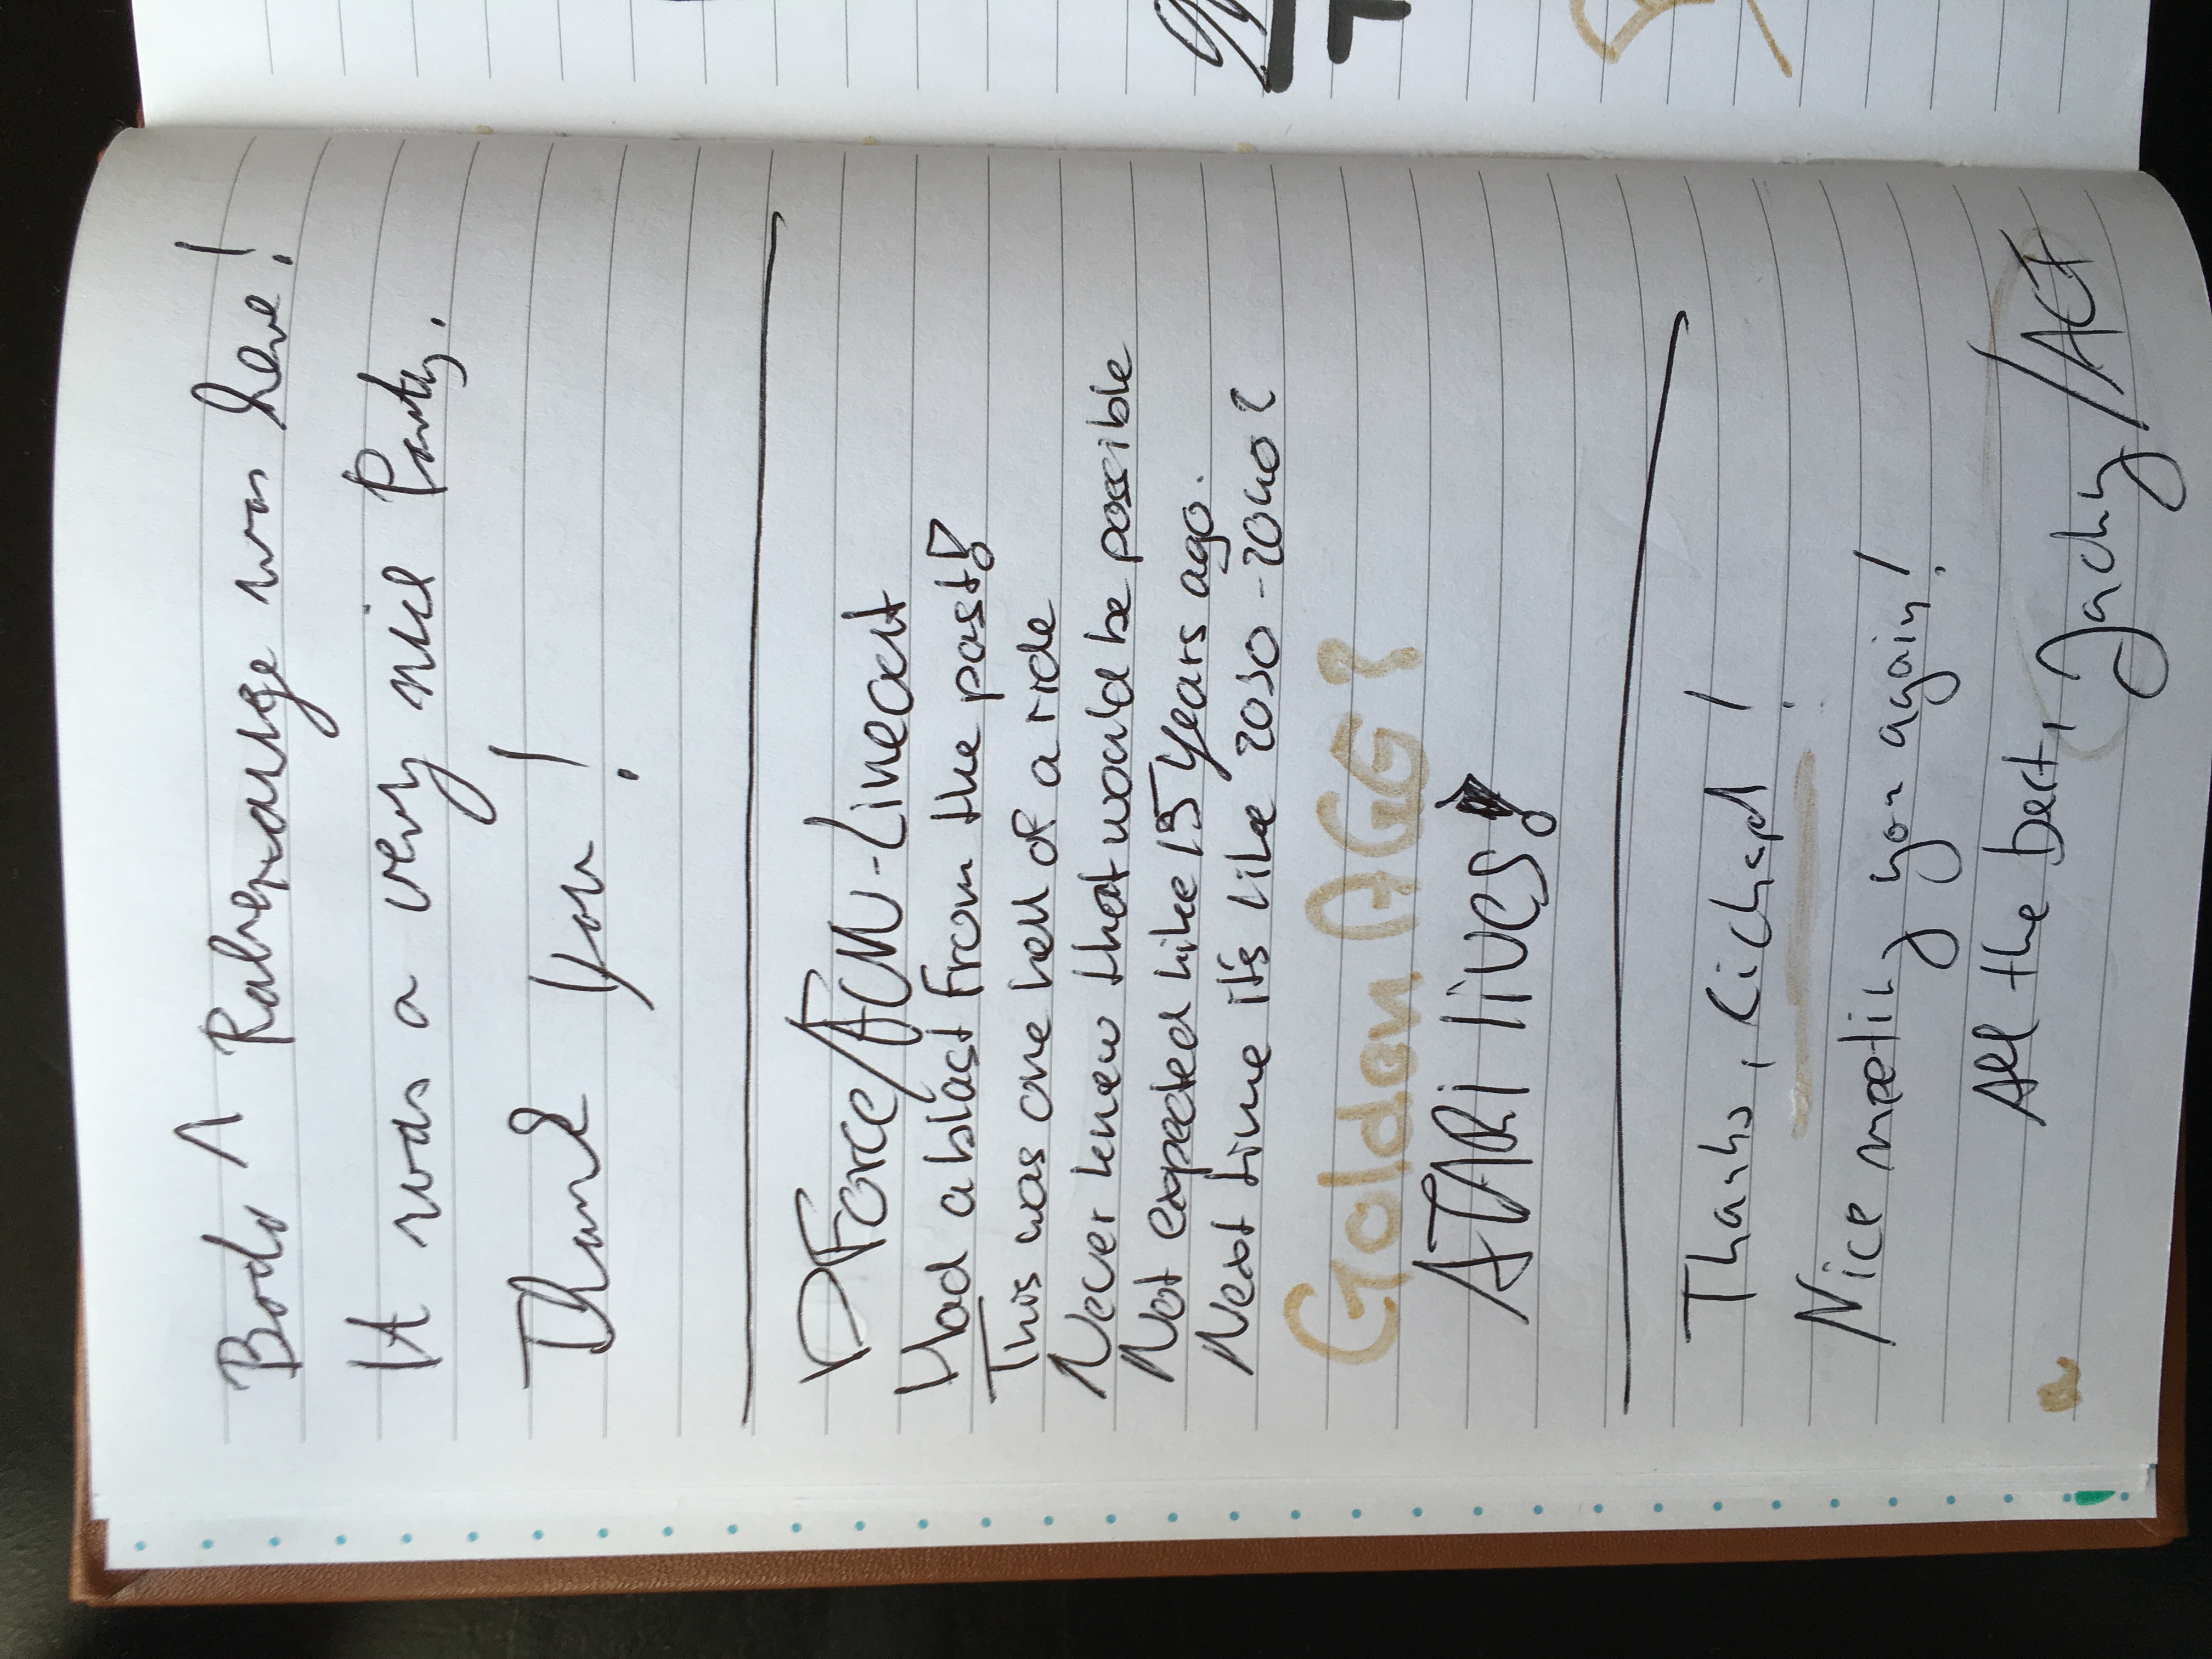 Bodo / Rabenauge was here!
It was a very nice Party.
Thank you!
DForce/ACU-Lineout
Had a blast from the past!
This was one hell of a ride
Never knew that would be possible
Not expected like 15 years ago.
Next time it's like 2030-2040?
Golden AGE?
ATARI lives!
Thanks, Richard!
Nice meeting you again!
All the best, Jacky/ACF